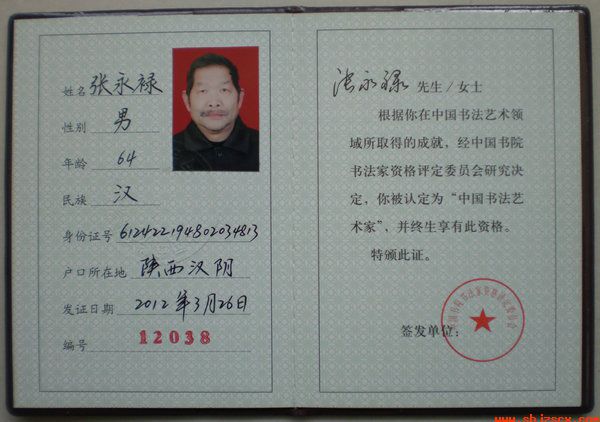 姓名 张永禄
性别 男
年龄 64
民族 汉
身份证号 612422194802034813
户口所在地 陕西汉阴
发证日期 2012年3月26日
编号 12038
张永禄 先生/女士
根据你在中国书法艺术领
域所取得的成就，经中国书院
书法家资格评定委员会研究决
定，你被认定为“中国书法艺
术家”，并终生享有此资格。
特颁此证。
签发单位：
www.shjzscx.com